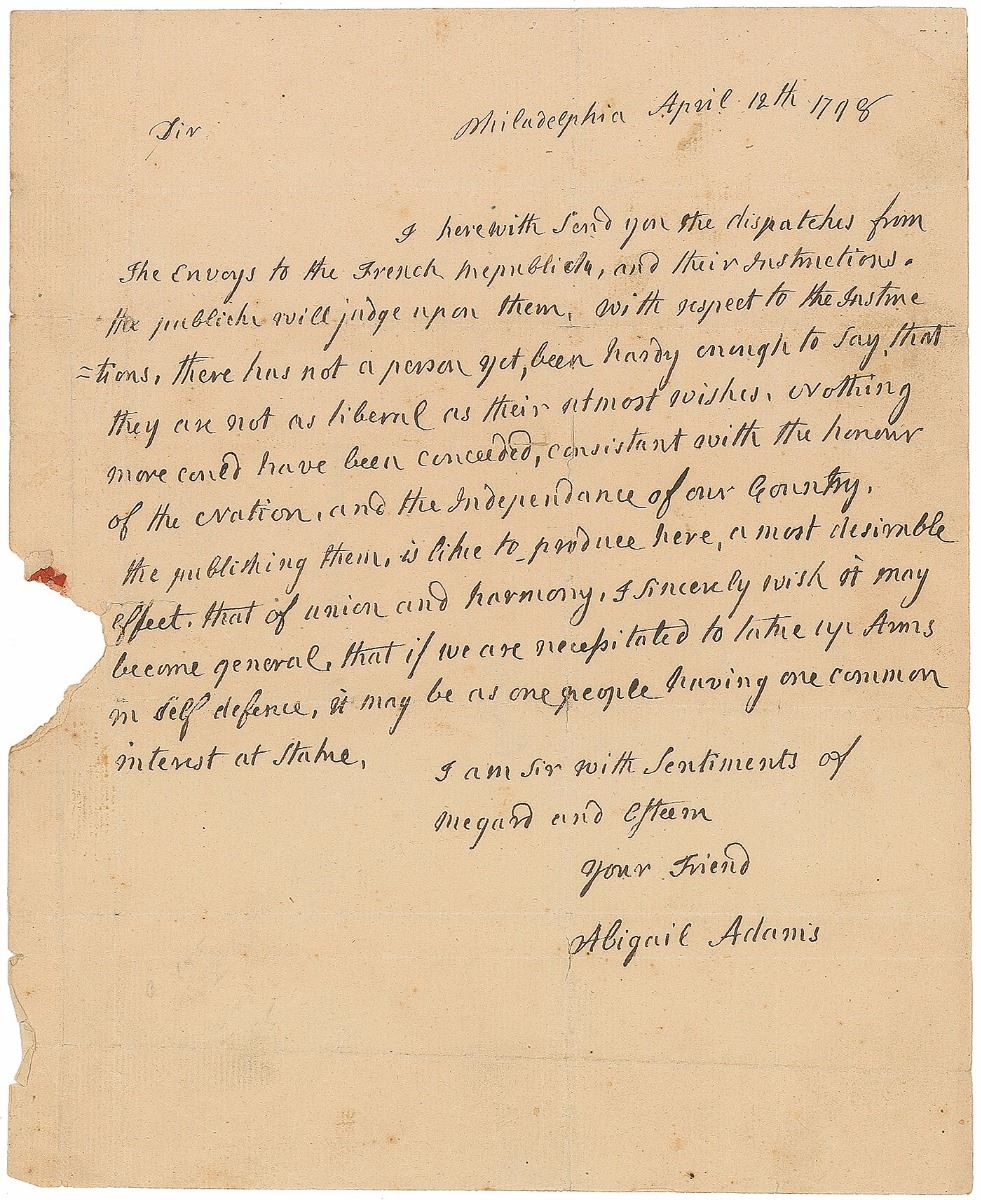 Philadelphia April 12th 1798
Sir
I herewith Send you the dispatches from
The Envoys to the French Republick, and their Instructions.
the publick will judge upon them, with respect to the Instruc
=tions, there has not a person yet, been hardy enough to Say, that
they are not as liberal as their utmost wishes. Nothing
more could have been conceeded, consistant with the honour
of the Nation, and the Independance of our Country.
the publishing them, is like to produce here, a most desirable
effect. that of union and harmony, I sincerely wish it may
become general, that if we are necessitated to take up Arms
in self defence, it may be as one people having one common
interest at Stake,
I am Sir with Sentiments of
Regard and Esteem
Your Friend
Abigail Adams